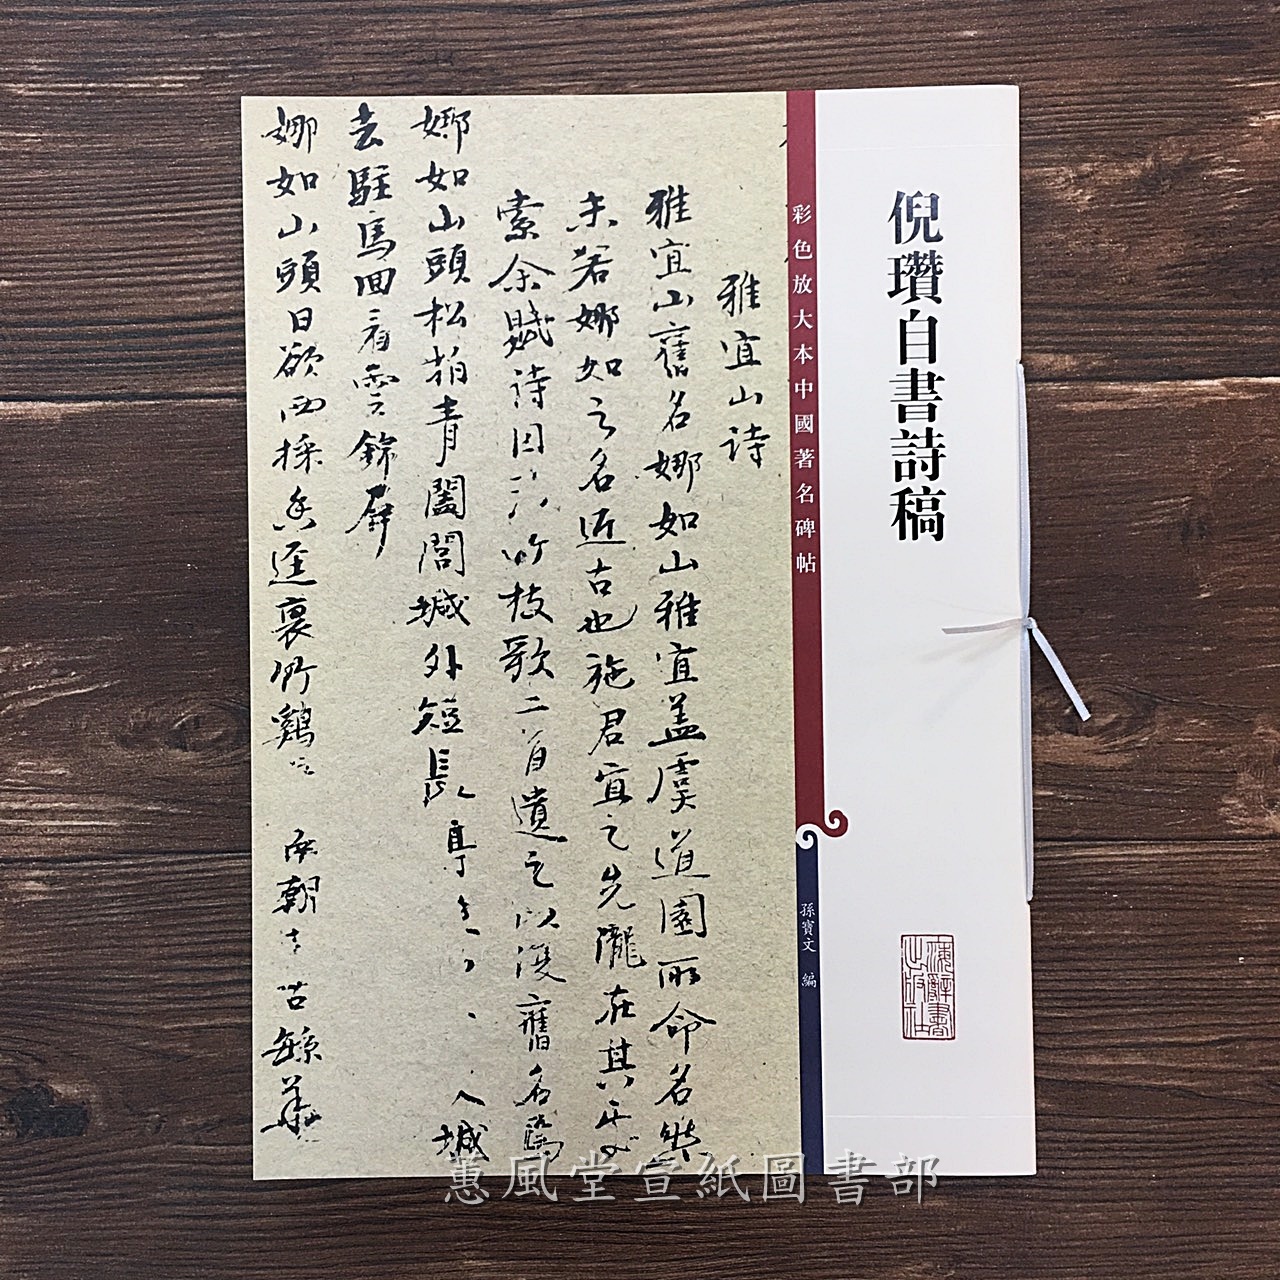 倪瓚自書詩稿
海辭書出版社
彩色放大本中國著名碑帖
孫寶文 編
雅宜山詩
雅宜山舊名娜如山雅宜蓋虞道園所命名然
未若娜如之名近古也施君宜之先隴在其下
索余賦詩因 竹枝歌二首遺之以復舊名焉
娜如山頭松柏青闔閭城外短長亭 入城
去駐馬回看雲錦屏
娜如山頭日欲西採香徑裏竹雞 南朝 古 繇華
蕙風堂宣紙圖書部